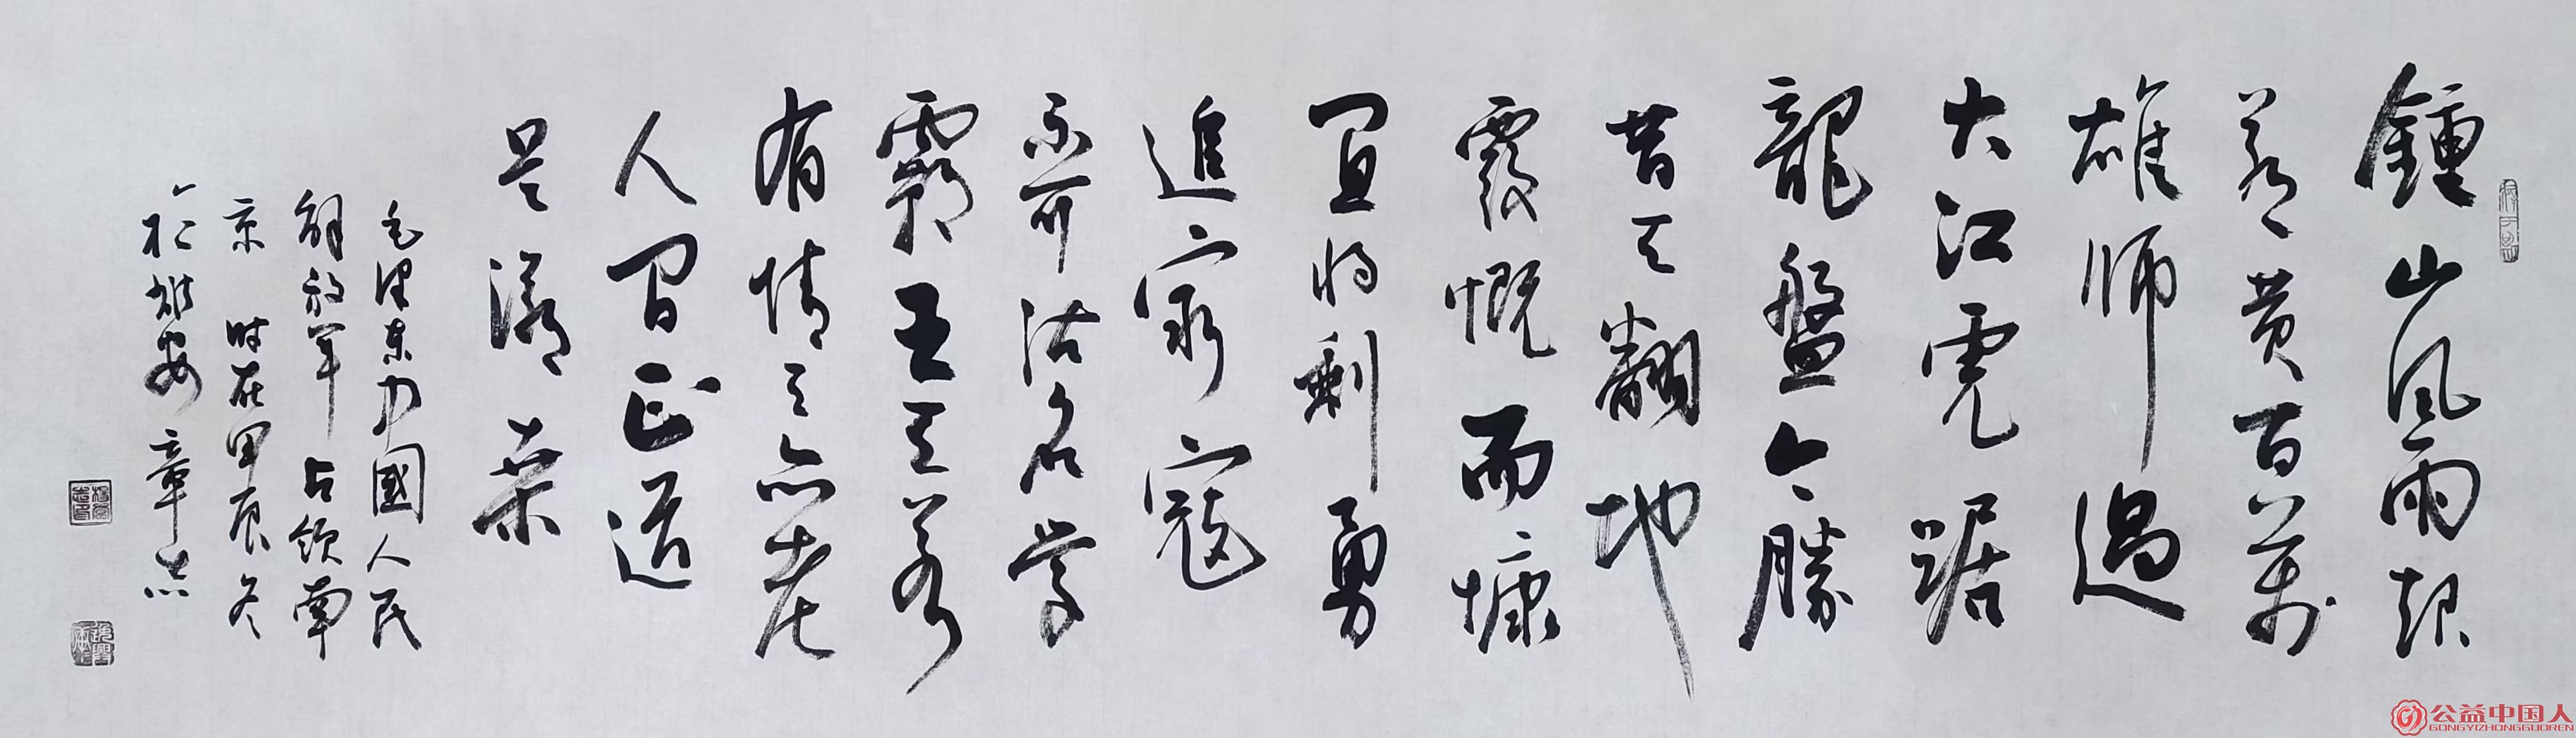 鍾山风雨起
蒼黄百萬
雄师過
大江虎踞
龍盤今勝
昔天翻地
覆慨而慷
宜将剩勇
追窮寇
不可沽名學
霸王天若
有情天亦老
人间正道
是滄桑
毛泽东國人民
解放军占领南
京 时在甲辰冬
於雄安 章志
公益中国人
GONGYIZHONGGUOREN